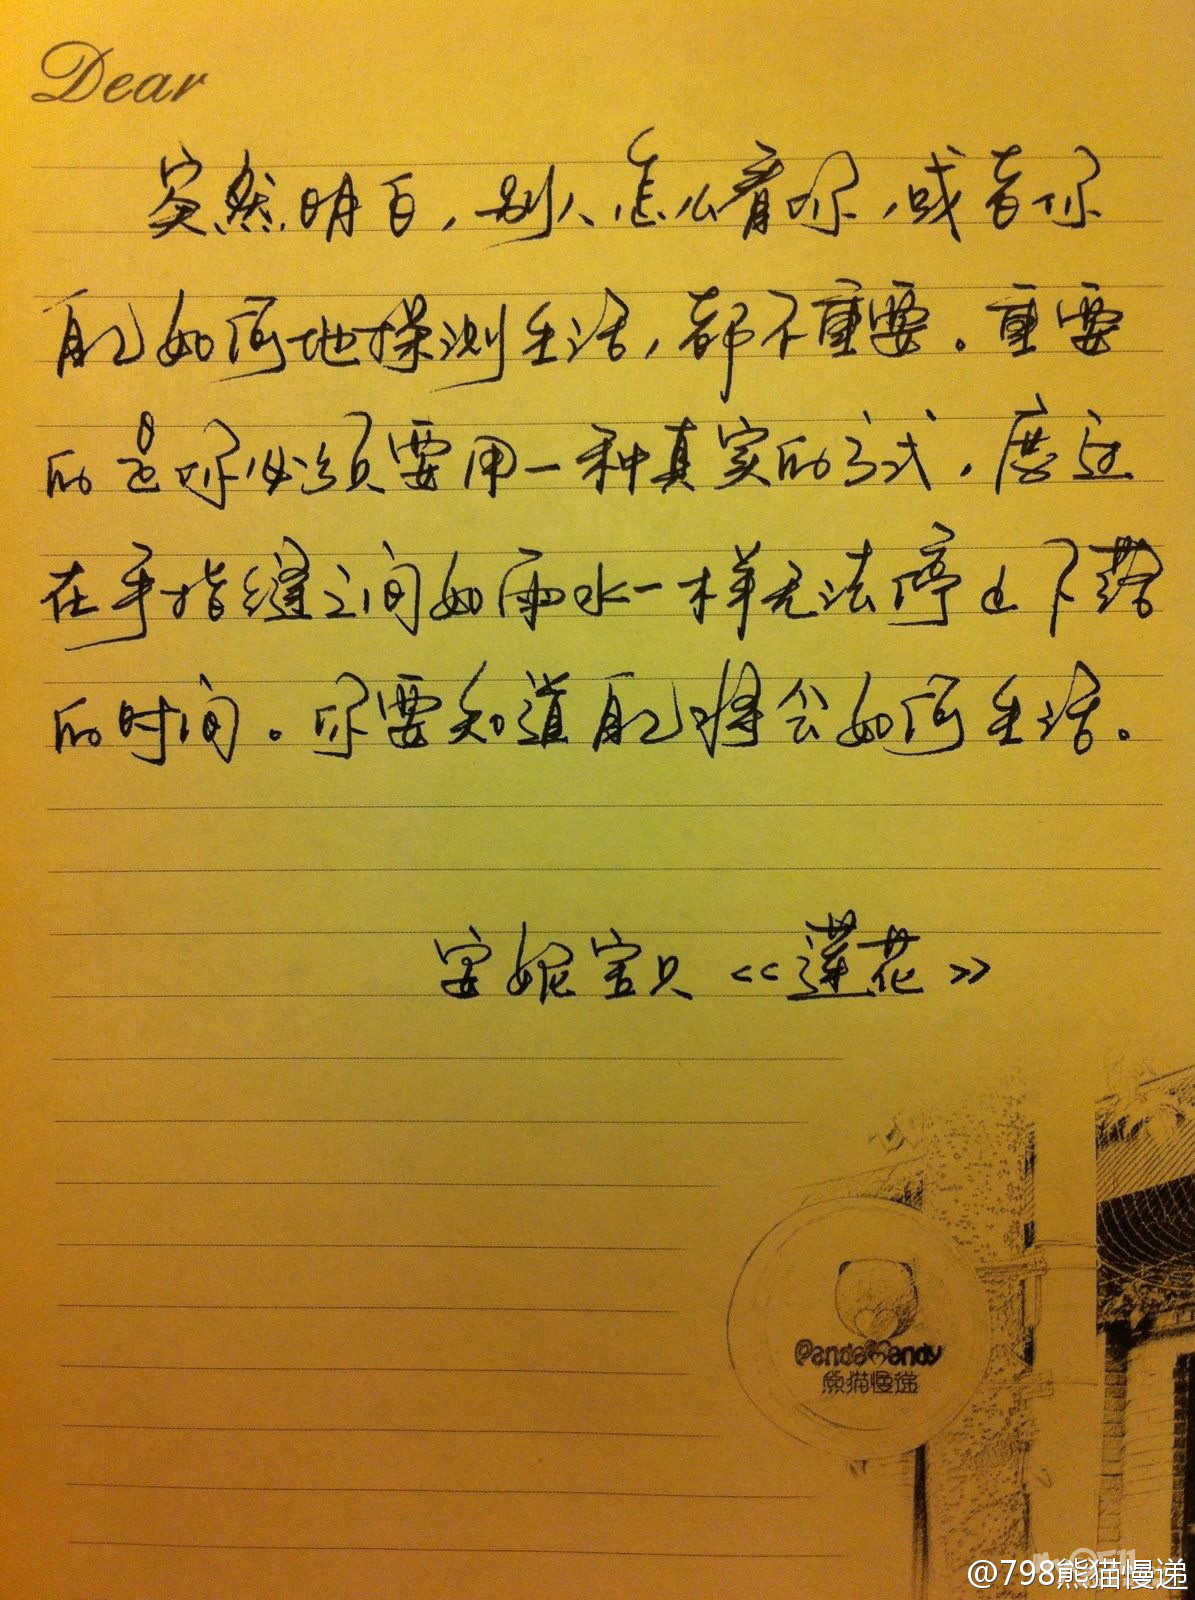 Dear
突然明白，别人怎么看你，或者你
自己如何地探测生活，都不重要。重要
的是你必须要用一种真实的方式，度过
在手指缝之间如雨水一样无法停止下落
的时间。你要知道自己将会如何生活。
安妮宝贝《莲花》
PandaMandy
熊猫慢递
@798熊猫慢递